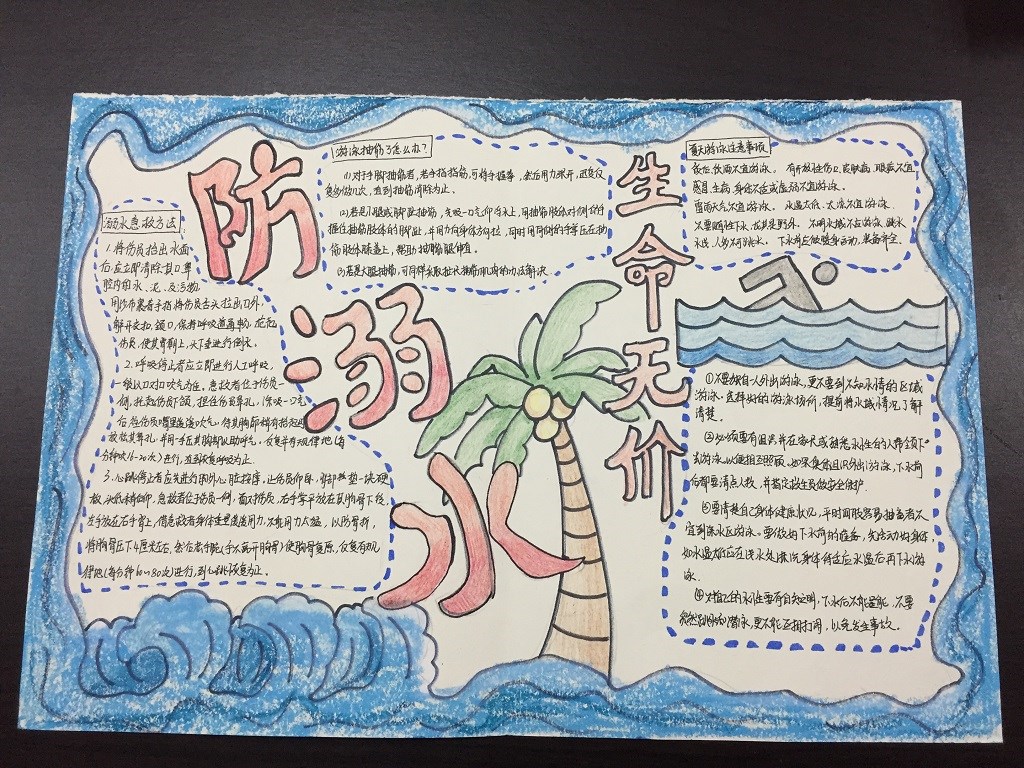 防溺水
生命无价
溺水急救方法
1.将伤员抬出水面
后,应立即清除其口鼻
腔内的水、泥、及污物,
用纱布裹着手指将伤员舌头拉出口外,
解开衣扣、领口,保持呼吸道通畅,
伤员,使其背朝上,头下垂进行倒水。
2.呼吸停止者应立即进行人工呼吸,
一般以口对口吹气为佳。急救者位于伤员一
侧,托起伤员下颌,捏住伤员鼻孔,深吸一口气
后,往伤员嘴里缓缓吹气,待其胸廓稍有抬起时
放松其鼻孔,并用一手压其胸部以助呼气。反复并有规律地(每
分钟吹16~20次)进行,直到恢复呼吸为止。
3.心跳停止者应先进行胸外心脏按摩,让伤员仰卧,背部垫一块硬
板,头低稍后仰,急救者位于伤员一侧,面对伤员,右手掌平放在其胸骨下段,
左手放在右手背上,借急救者身体重量缓缓用力,不能用力太猛,以防骨折,
将胸骨压下4厘米左右,然后松手腕(手不离开胸骨)使胸骨复原,反复有规
律地(每分钟60~80次)进行,到心跳恢复为止。
游泳抽筋了怎么办?
(1)对于手脚抽筋者,若手指抽筋,可将手握拳,然后用力张开,迅速反
复多做几次,直到抽筋消除为止。
(2)若是小腿或脚趾抽筋,先吸一口气仰浮水上,用抽筋肢体对侧的手
握住抽筋肢体的脚趾,并用力向身体方向拉,同时用同侧的手掌压在抽
筋肢体膝盖上,帮助抽筋腿伸直。
(3)若是大腿抽筋,可同样采取拉长抽筋肌肉的办法解决
夏天游泳注意事项
饭后、饮酒不宜游泳。有开放性伤口、皮肤病、眼疾不宜
感冒、生病、身体不适或虚弱不宜游泳。
雷雨天气不宜游泳。水温太低、太凉不宜游泳。
不要随性下水,尤其是野外。不明水域不应游泳、跳水
水浅、人多不可跳水。下水前应做暖身运动,装备齐全。
①不要独自一人外出游泳,更不要到不知水情的区域
游泳。选择好的游泳场所,提前将水域情况了解
清楚。
②必须要有组织并在家长或熟悉水性的人带领下
去游泳,以便相互照顾。如果集体组织外出游泳,下水前
后都要清点人数,并指定救生员做安全保护
③要清楚自己身体健康状况,平时四肢容易抽筋者不
宜到深水区游泳。要做好下水前的准备,先活动身体,
如水温太低应在浅水处淋洗身体待适应水温后再下水游
泳。
④对自己的水性要有自知之明,下水后不能逞能,不要
贸然跳水和潜泳,更不能互相打闹,以免发生事故。